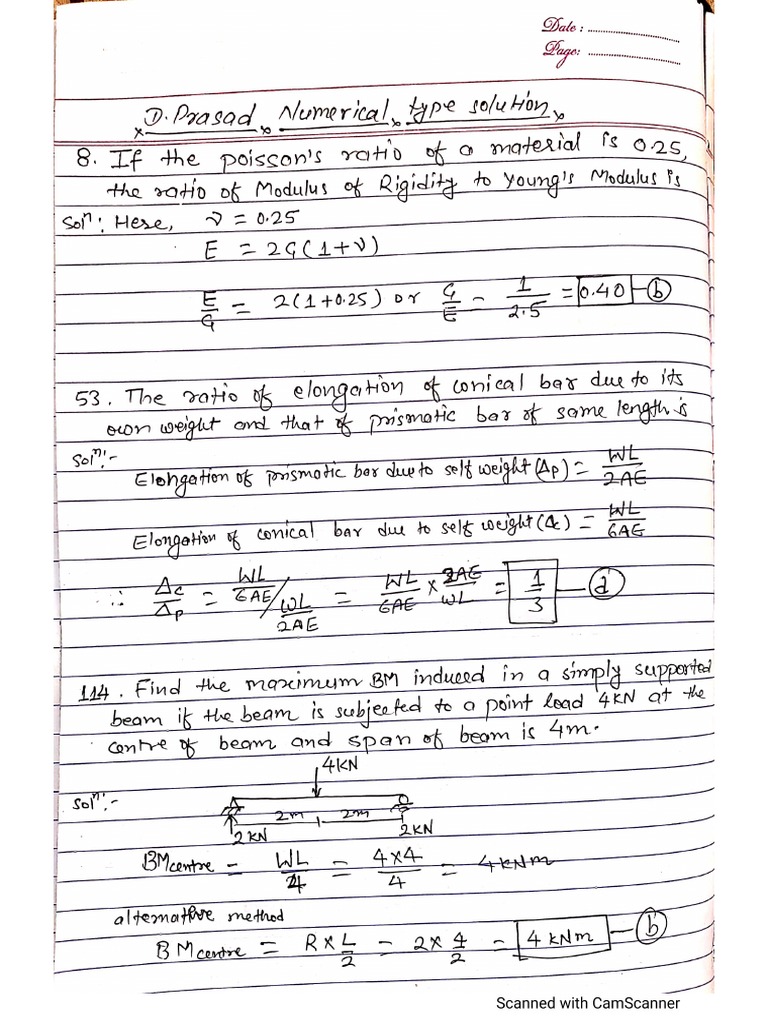 Date : ..............................
Page: ..............................
D. Prasad Numerical type solution
8. If the poisson's ratio of a material is 0.25,
the ratio of Modulus of Rigidity to Young's Modulus is
Solⁿ: Here, ν = 0.25
E = 2G(1+ν)
E/G = 2(1+0.25) or G/E = 1/2.5 = 0.40 — (b)
53. The ratio of elongation of conical bar due to its
own weight and that of prismatic bar of same length is
Solⁿ:-
Elongation of prismatic bar due to self weight (Δp) = WL/2AE
Elongation of conical bar due to self weight (Δc) = WL/6AE
∴ Δc/Δp = WL/6AE / WL/2AE = WL/6AE × 2AE/WL = 1/3 — (a)
114. Find the maximum BM induced in a simply supported
beam if the beam is subjected to a point load 4KN at the
centre of beam and span of beam is 4m.
4KN
Solⁿ:-
2m 2m
2KN 2KN
BMcentre = WL/4 = 4×4/4 = 4KNm
alternative method
BMcentre = R×L/2 = 2×4/2 = 4 KNm — (b)
Scanned with CamScanner